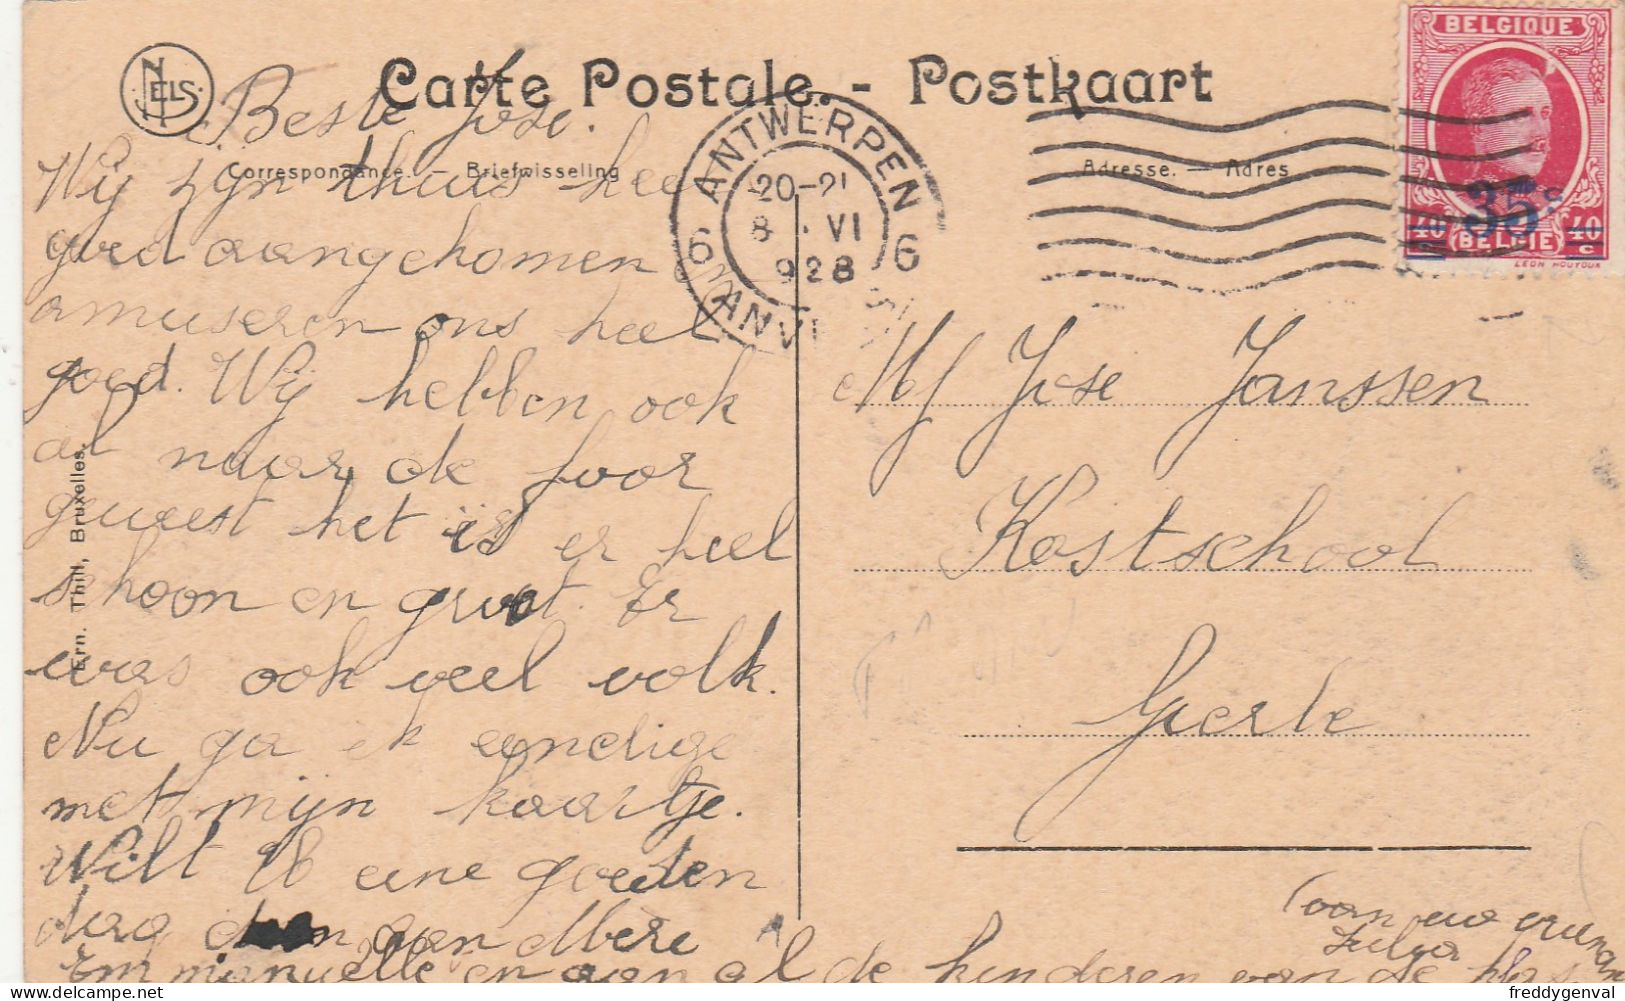 NELS
Carte Postale. - Postkaart
Correspondance. — Briefwisseling
Adresse. — Adres
BELGIQUE
35c
40 BELGIË 40
c c
LEON HOUYOUX
ANTWERPEN
20-21
8 VI
928
6 6
ANV
Beste Jose.
Wij zijn thuis hee
goed aangekomen en
amuseren ons heel
goed. Wij hebben ook
al naar de foor
geweest het is er heel
schoon en groot. Er
was ook veel volk.
Nu ga ik eindige
met mijn kaartje.
Wilt U eene goeden
dag doen aan Mere
Emmanuelle en aan al de kinderen van de klas.
Ern. Thill, Bruxelles.
Mej Jose Janssen
Kostschool
Gierle
van uw vriendin
freddygenval